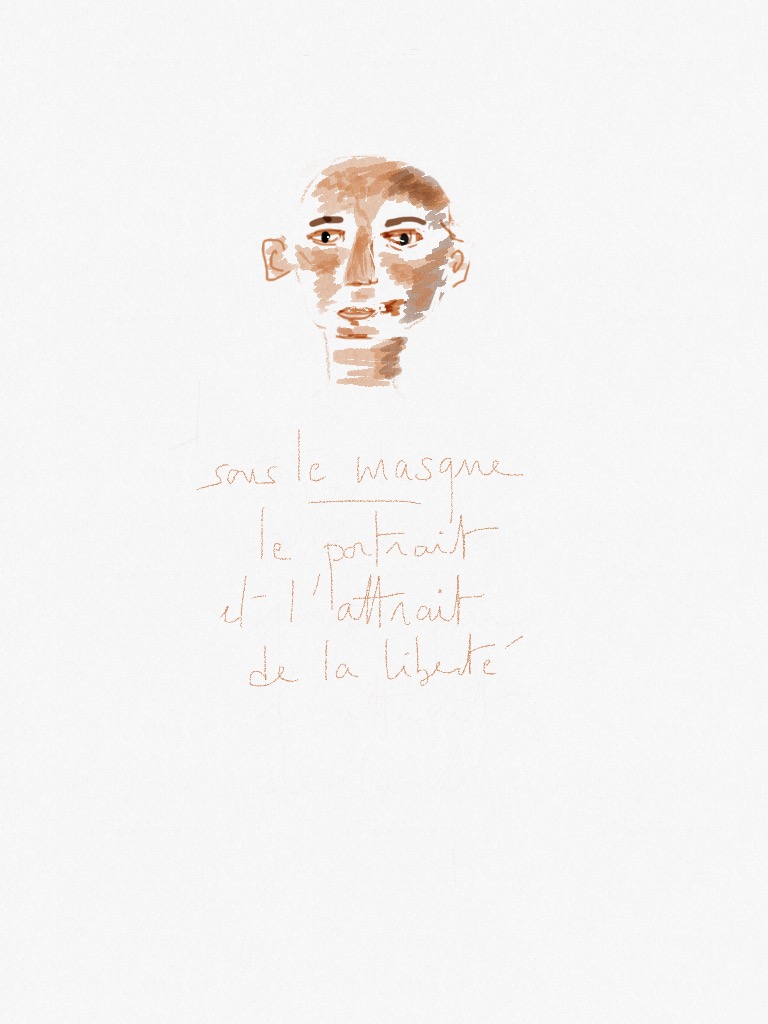 sous le masque
le portrait
et l'attrait
de la liberté